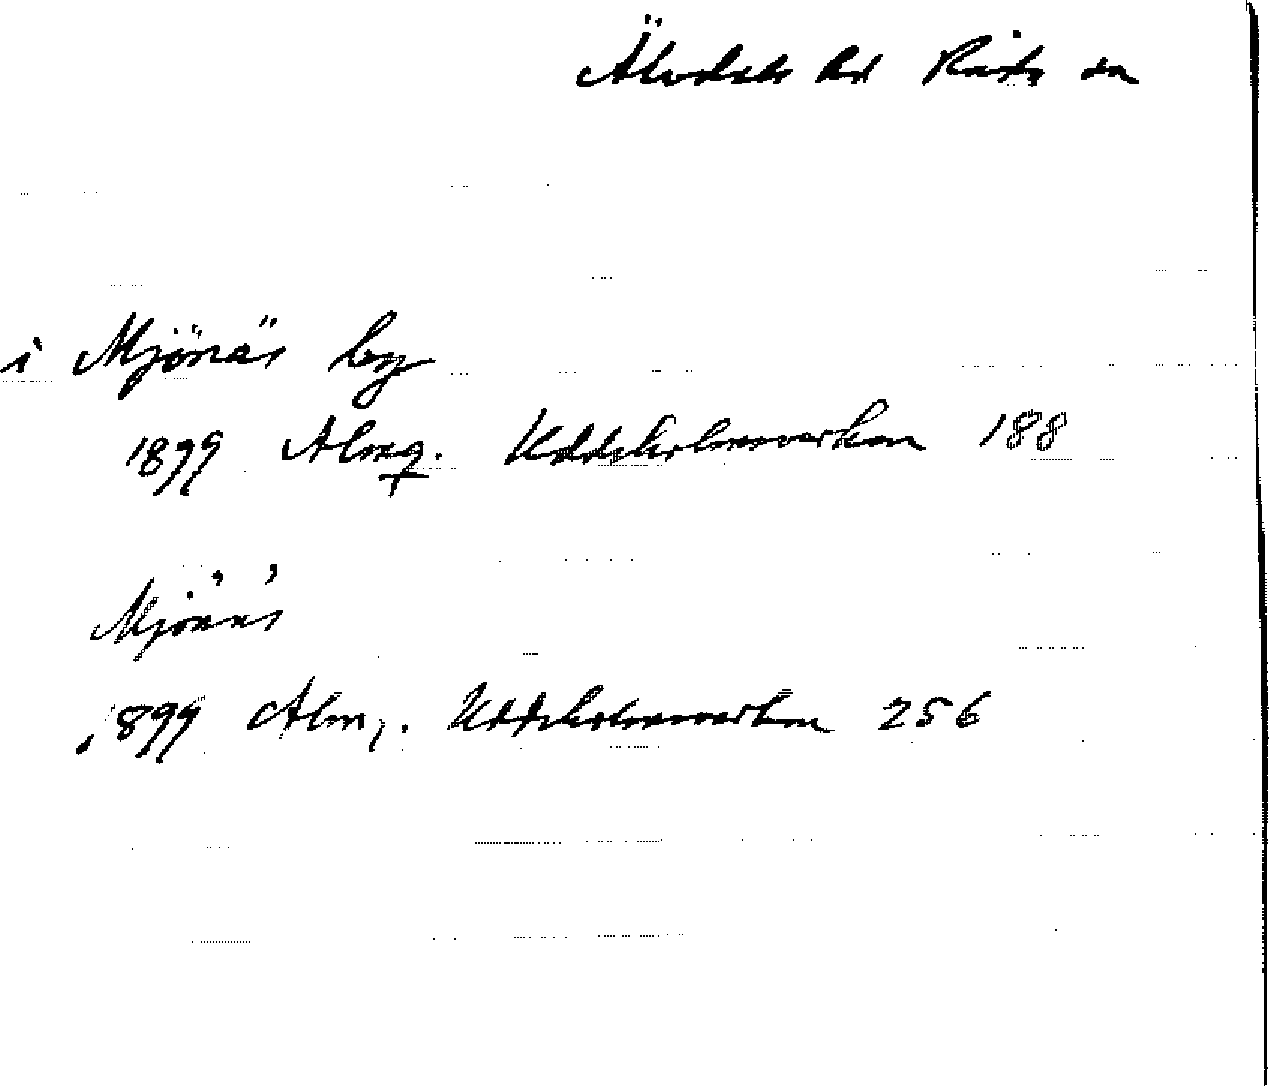 Älvdals hd Råda sn
i Mjönäs by
1899 Almq. Uddeholmsverken 188
Mjönäs
1899 Almq. Uddeholmsverken 256